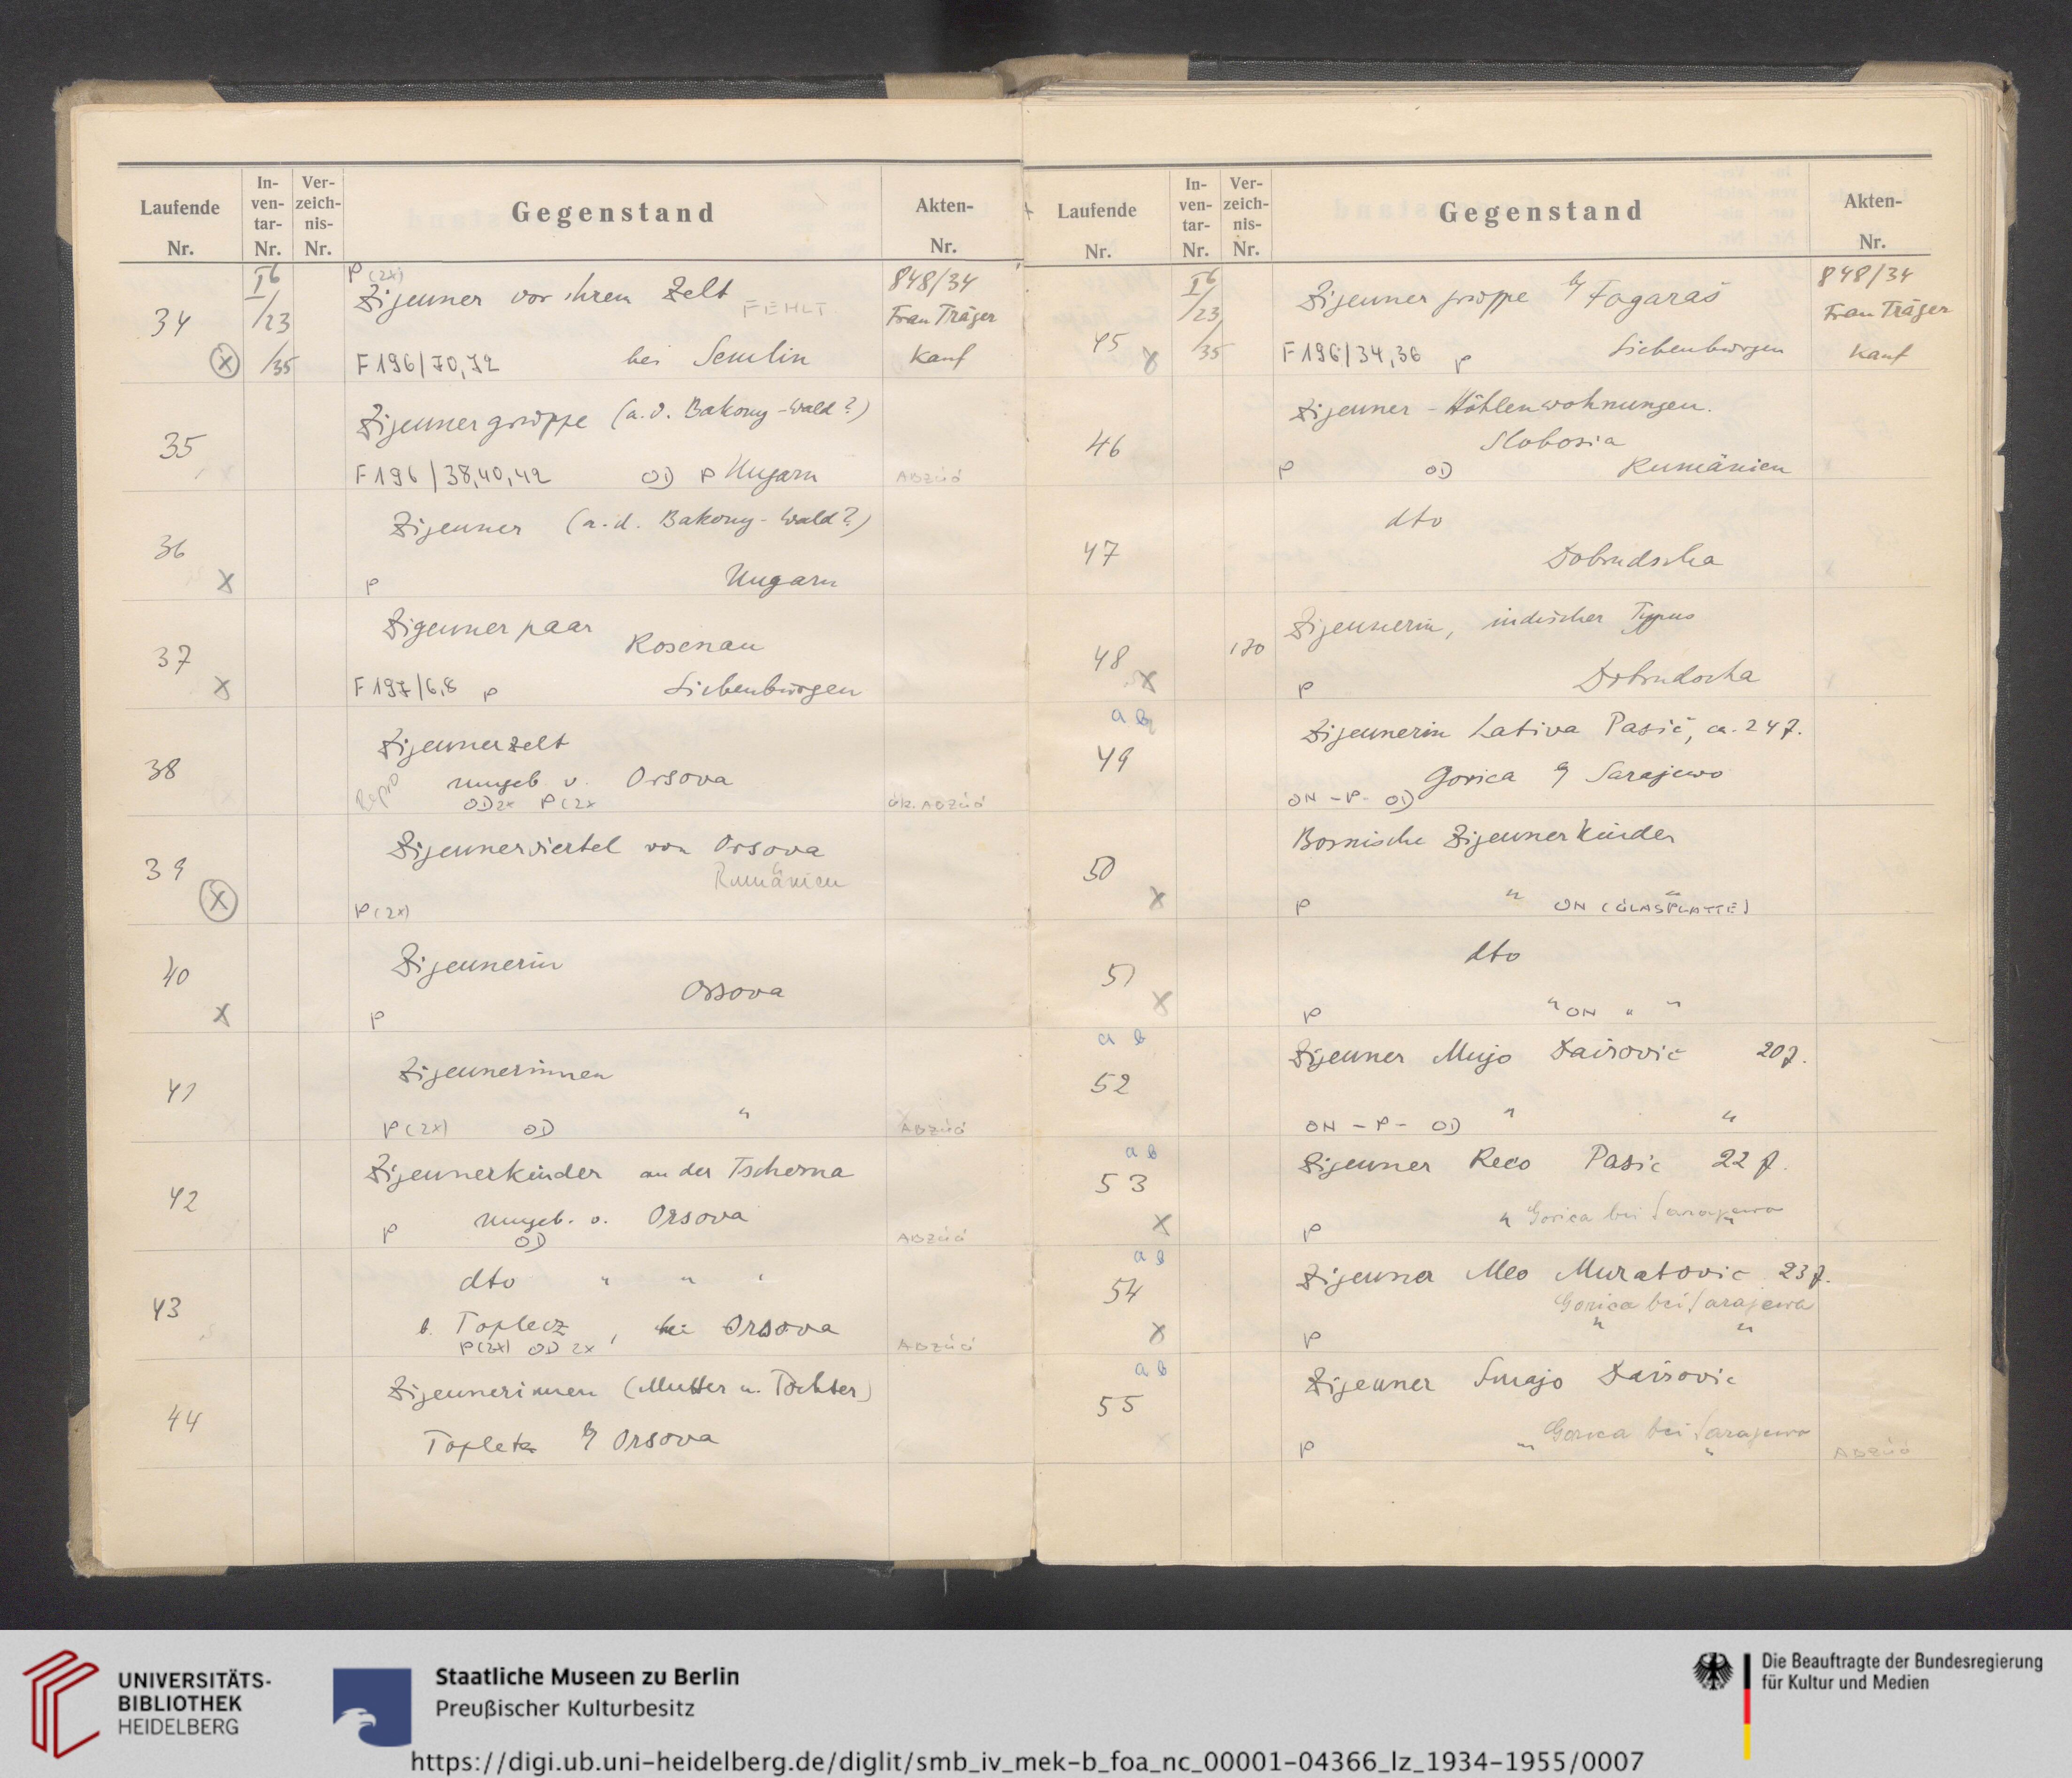 Laufende Nr. In-ven-tar-Nr. Ver-zeich-nis-Nr. Gegenstand Akten-Nr.
I6 P (2x) Zigeuner vor ihrem Zelt FEHLT 848/34
34 /23 Frau Träger
X /35 F 196/70,72 bei Semlin Kauf
35 Zigeunergruppe (a. d. Bakony-Wald?)
F 196/38,40,42 OD P Ungarn ABZÜG
36 Zigeuner (a. d. Bakony-Wald?)
X P Ungarn
37 Zigeunerpaar
Rosenau
X F 197/6,8 P Siebenbürgen
38 Zigeunerzelt
Repro Umgeb. v. Orsova
OD 2x P (2x ABZÜG
39 Zigeunerviertel von Orsova
Rumänien
X P (2x)
40 Zigeunerin
Orsova
X P
41 Zigeunerinnen
P (2x) OD " ABZÜG
42 Zigeunerkinder an der Tscherna
P Umgeb. v. Orsova
OD ABZÜG
43 dto " " "
b. Toplecz, bei Orsova
P (2x) OD 2x ABZÜG
44 Zigeunerinnen (Mutter u. Tochter)
Topletz b/ Orsova
Laufende Nr. In-ven-tar-Nr. Ver-zeich-nis-Nr. Gegenstand Akten-Nr.
I6 Zigeunergruppe b/ Fogaraš 848/34
45 /23 Frau Träger
X /35 F 196/34,36 P Siebenbürgen Kauf
46 Zigeuner-Höhlenwohnungen.
Slobosia
P OD Rumänien
47 dto
Dobrudscha
48 170 Zigeunerin, indischer Typus
X P Dobrudscha
a b
49 Zigeunerin Lativa Pasič, ca. 24 J.
Gorica b/ Sarajewo
ON - P - OD
50 Bosnische Zigeunerkinder
X P " ON (GLASPLATTE)
51 dto
X P " ON " "
a b
52 Zigeuner Mujo Dairovič 20 J.
ON - P - OD " "
a b
53 Zigeuner Reco Pasic 22 J.
X P " Gorica bei Sarajewo
a b
54 Zigeuner Meo Muratovic 23 J.
Gorica bei Sarajewo
X P " "
a b
55 Zigeuner Smajo Dairovic
P " Gorica bei Sarajewo " ABZÜG
UNIVERSITÄTS-
BIBLIOTHEK
HEIDELBERG
Staatliche Museen zu Berlin
Preußischer Kulturbesitz
Die Beauftragte der Bundesregierung
für Kultur und Medien
https://digi.ub.uni-heidelberg.de/diglit/smb_iv_mek-b_foa_nc_00001-04366_lz_1934-1955/0007